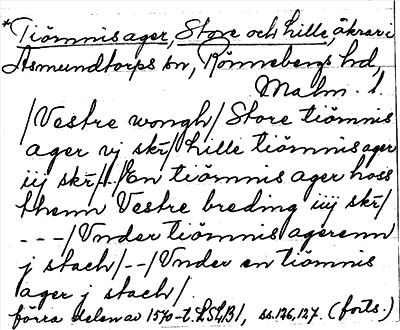 *Tiömnisager, Store och Lille, åkrar i
Asmundtorps sn, Rönnebergs hd,
Malm. l.
/Vestre wongh/ Store tiömnis
ager vj skr/ Lille tiömnis ager
iij skr/--/En tiömnis ager hoss
themn Vestre breding iiij skr/
---/Vnder tiömnis agerenn
j stach/--/Vnder en tiömnis
ager j stach/
förra delen av 1570-t. LSLB1, ss. 126, 127. (forts.)